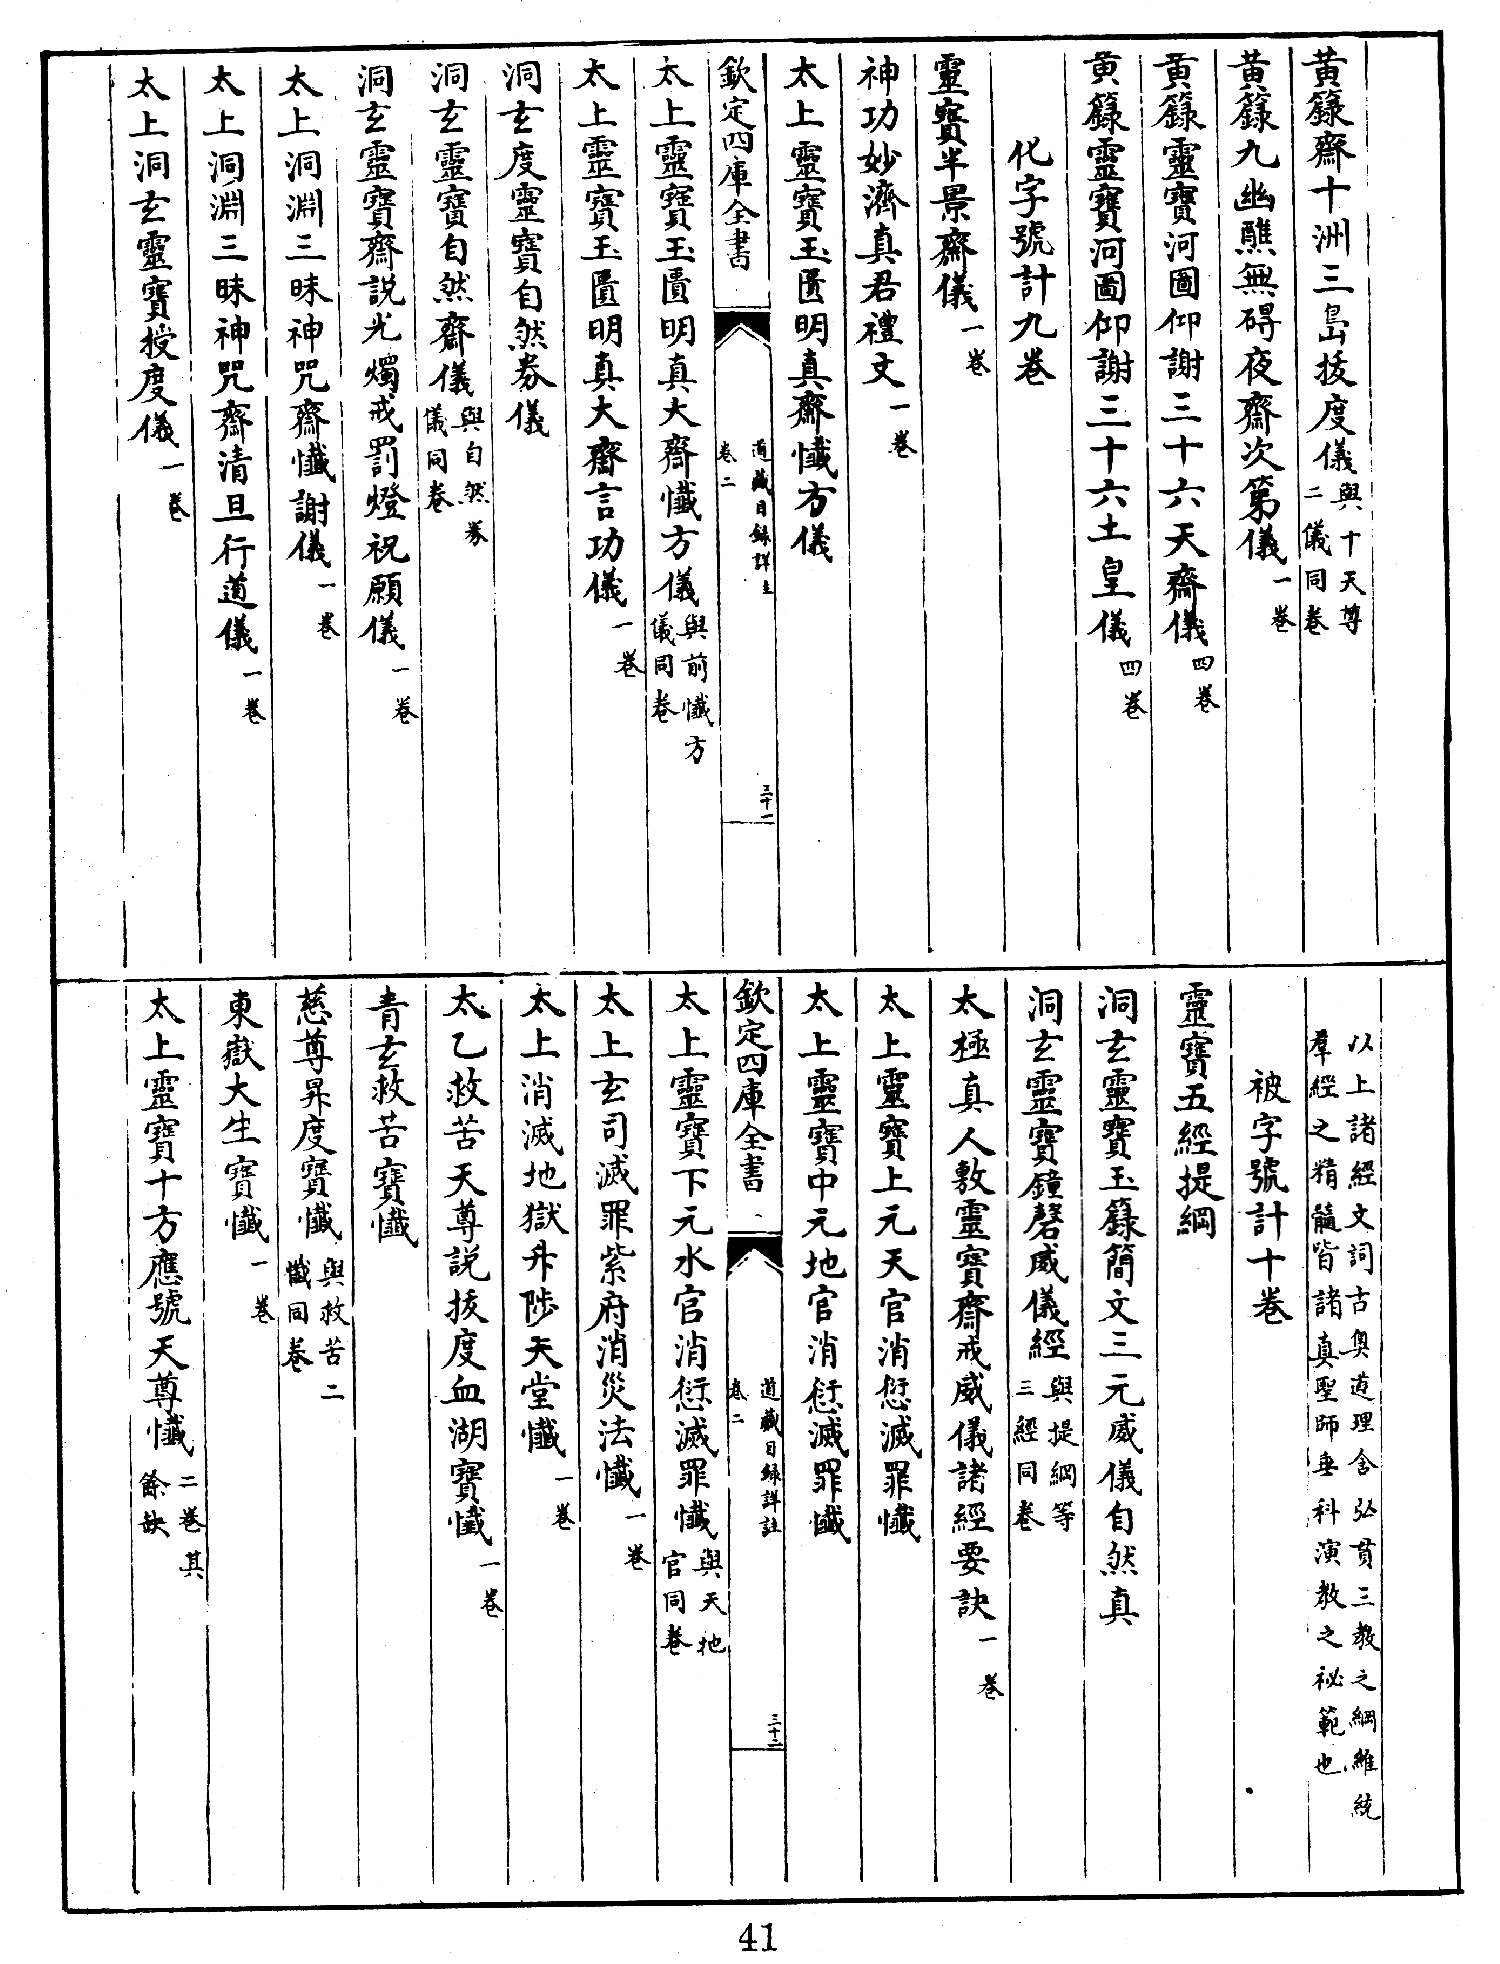 黄籙齋十洲三島拔度儀與十天尊二儀同卷
黄籙九幽醮無碍夜齋次第儀一卷
黄籙靈寳河圖仰謝三十六天齋儀四卷
黄籙靈寳河圖仰謝三十六土皇儀四卷
化字號計九卷
靈寳半景齋儀一卷
神功妙濟真君禮文一卷
太上靈寳玉匱明真齋懺方儀
欽定四庫全書
道藏目録詳註
卷二
三十一
太上靈寳玉匱明真大齋懺方儀與前懺方儀同卷
太上靈寳玉匱明真大齋言功儀一卷
洞玄度靈寳自然券儀
洞玄靈寳自然齋儀與自然券儀同卷
洞玄靈寳齋説光燭戒罰燈祝願儀一卷
太上洞淵三昧神咒齋懺謝儀一卷
太上洞淵三昧神咒齋清旦行道儀一卷
太上洞玄靈寳授度儀一卷
以上諸經文詞古奥道理含弘貫三教之綱維統
羣經之精髓皆諸真聖師垂科演教之祕範也
被字號計十卷
靈寳五經提綱
洞玄靈寳玉籙簡文三元威儀自然真
洞玄靈寳鐘磬威儀經與提綱等三經同卷
太極真人敷靈寳齋戒威儀諸經要訣一卷
太上靈寳上元天官消愆滅罪懺
太上靈寳中元地官消愆滅罪懺
欽定四庫全書
道藏目録詳註
卷二
三十二
太上靈寳下元水官消愆滅罪懺與天地官同卷
太上玄司滅罪紫府消災法懺一卷
太上消滅地獄升陟天堂懺一卷
太乙救苦天尊説拔度血湖寳懺一卷
青玄救苦寳懺
慈尊昇度寳懺與救苦二懺同卷
東嶽大生寳懺一卷
太上靈寳十方應號天尊懺二卷其餘缺
41